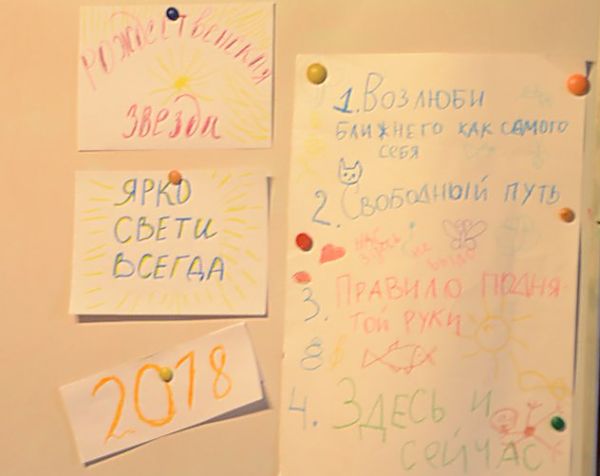 РОЖДЕСТВЕНСКАЯ
ЗВЕЗДА
ЯРКО
СВЕТИ
ВСЕГДА
2018
1. ВОЗЛЮБИ
БЛИЖНЕГО КАК САМОГО
СЕБЯ
2. СВОБОДНЫЙ ПУТЬ
3. ПРАВИЛО ПОДНЯ-
ТОЙ РУКИ
4. ЗДЕСЬ И
СЕЙЧАС